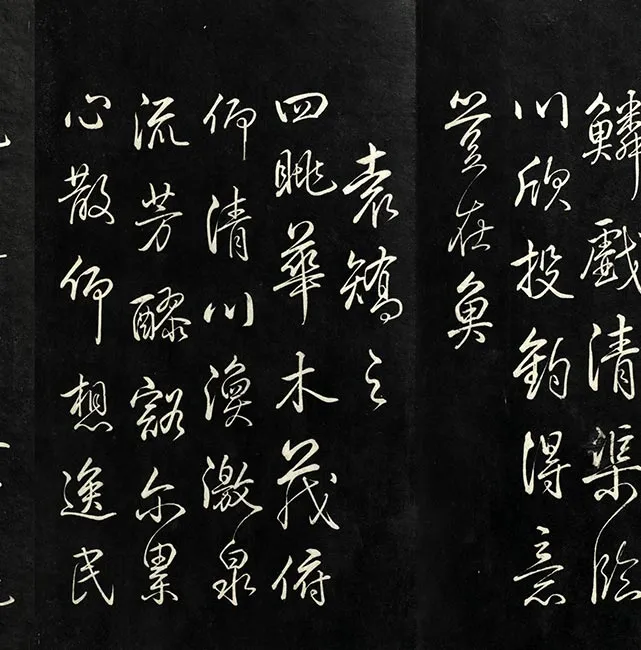 鱗戲清渠臨
川欣投釣得意
豈在魚
袁矯之
四眺華木茂俯
仰清川渙激泉
流芳醪豁尔累
心散仰想逸民